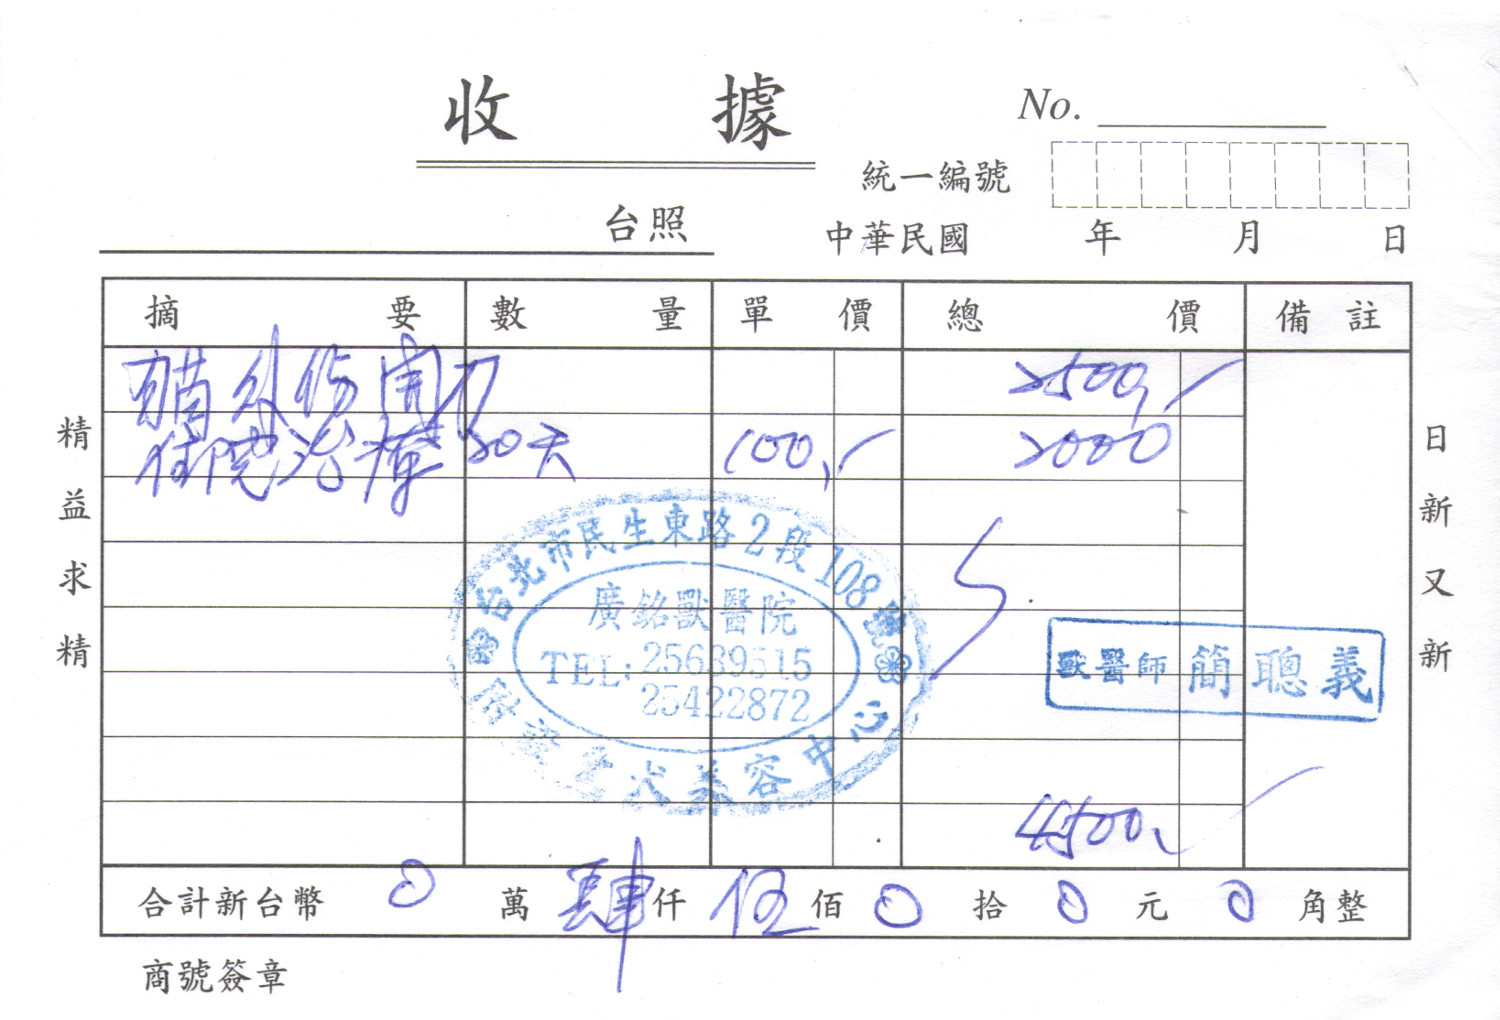 收據
No.
統一編號
台照
中華民國 年 月 日
摘要 數量 單價 總價 備註
貓外傷開刀 2500,
住院治療 20天 100, 2000
台北市民生東路2段108號
廣銘獸醫院
TEL: 25639515
25422872
附設愛犬美容中心
獸醫師 簡聰義
4500
合計新台幣 0 萬 肆 仟 伍 佰 0 拾 0 元 0 角整
商號簽章
精益求精
日新又新